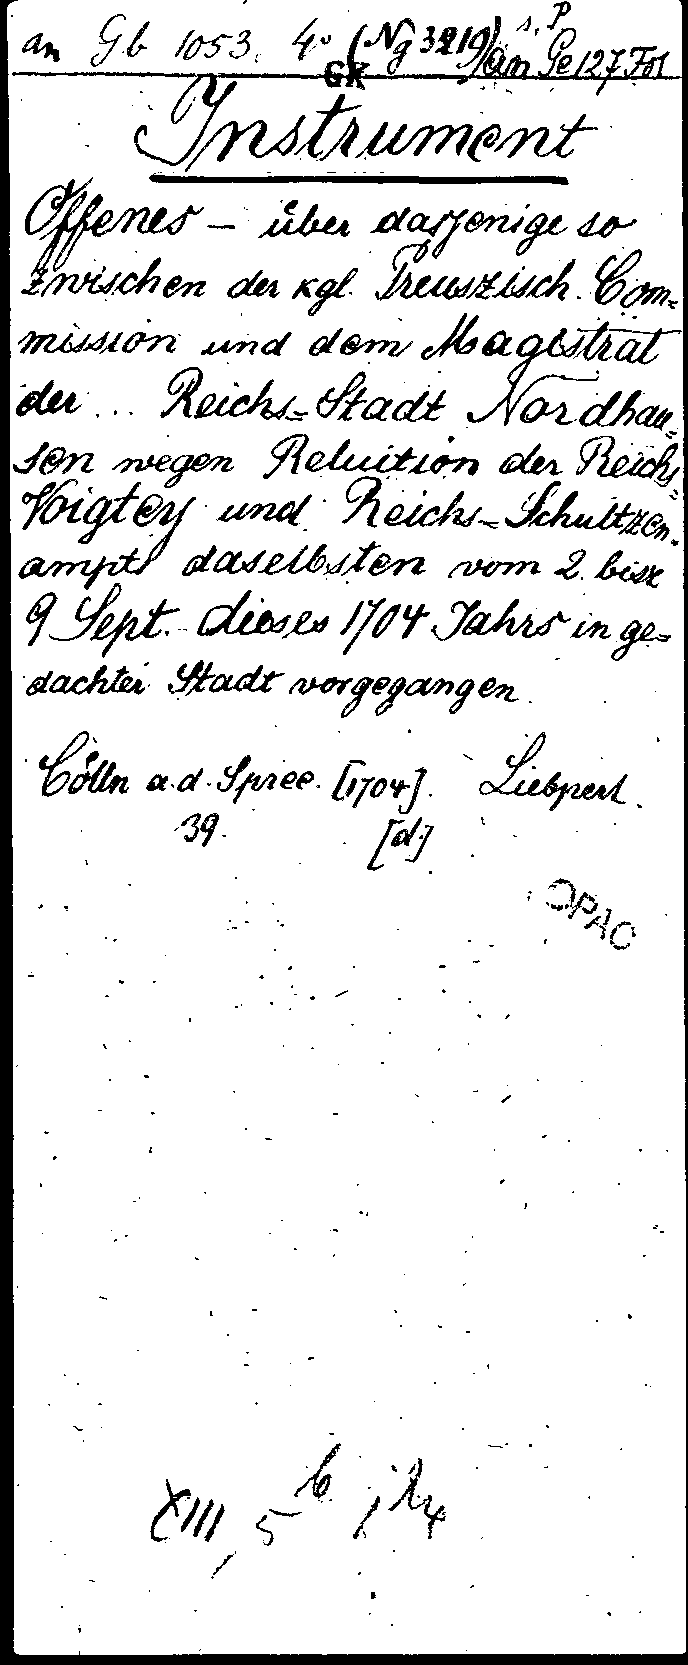 an Gb 1053. 4° (Ng 3219) s. P
GK an Pe 127 Fol
Instrument
Offenes – über dasjenige so
zwischen der kgl. Preuszisch. Com=
mission und dem Magistrat
der ... Reichs=Stadt Nordhau=
sen wegen Reluition der Reichs=
Voigtey und Reichs=Schultzen=
ampts daselbsten vom 2. bisz
9 Sept. dieses 1704 Jahrs in ge=
dachter Stadt vorgegangen.
Cölln a. d. Spree. [1704]. Liebpert.
39. [d.]
OPAC
XIII, 5 b